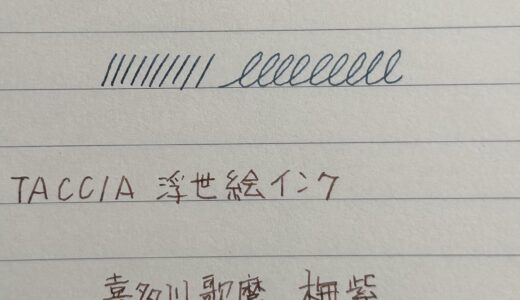 TACCIA 浮世絵インク
喜多川歌麿 梅紫